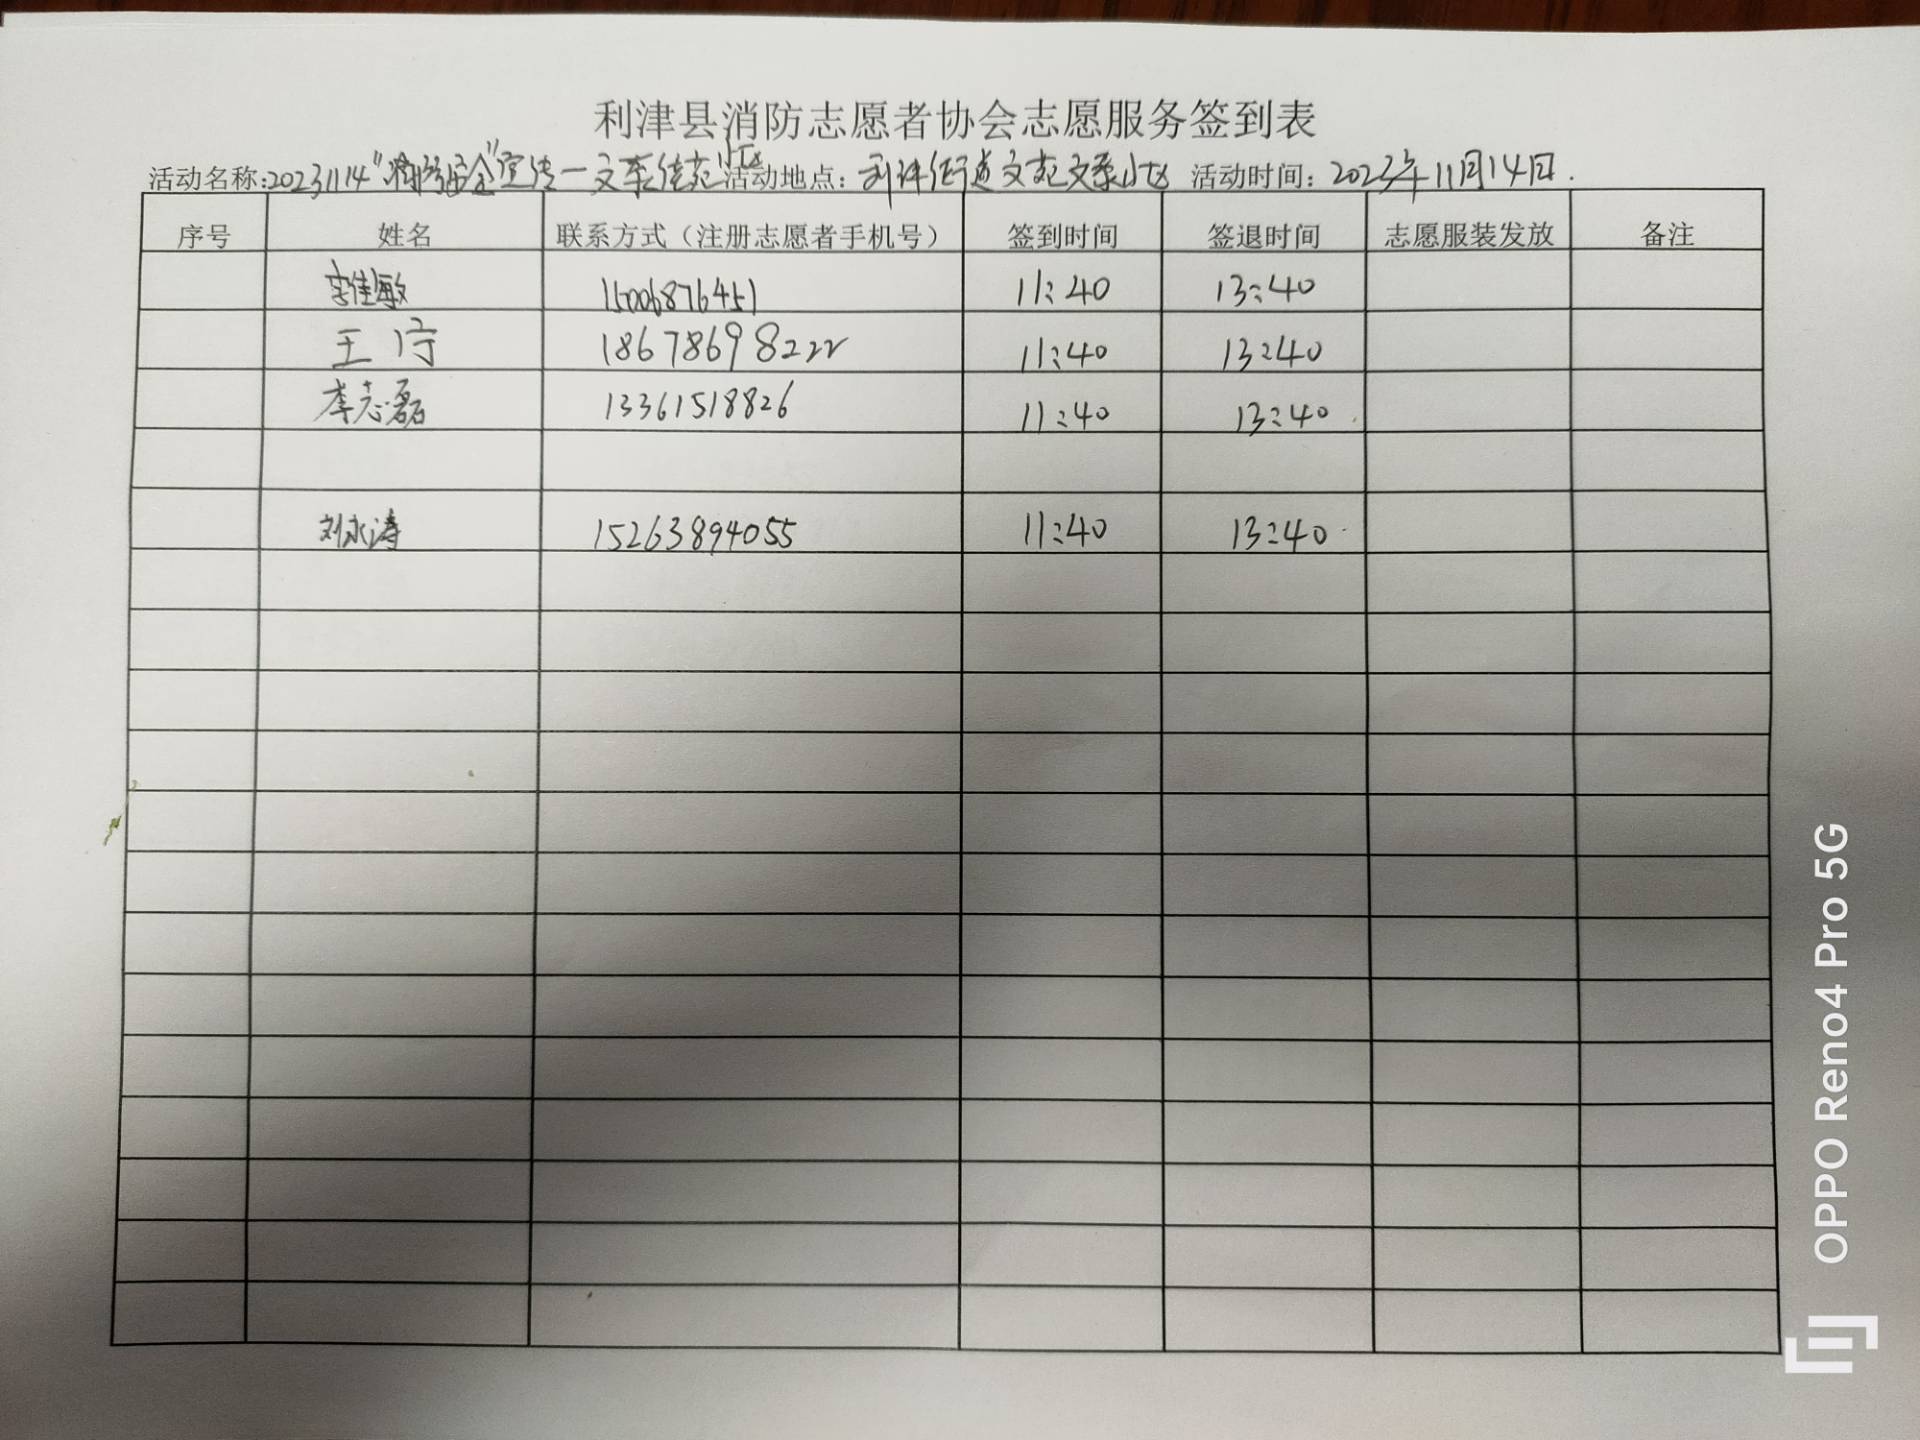 利津县消防志愿者协会志愿服务签到表
活动名称:20231114“消防安全”宣传—文萃佳苑小区 活动地点:利津街道文苑文萃小区 活动时间:2023年11月14日.
序号 姓名 联系方式（注册志愿者手机号） 签到时间 签退时间 志愿服装发放 备注
李佳敏 15006876451 11:40 13:40
王 18678698222 11:40 13:40
李志磊 13361518826 11:40 13:40
刘永涛 15263894055 11:40 13:40
OPPO Reno4 Pro 5G